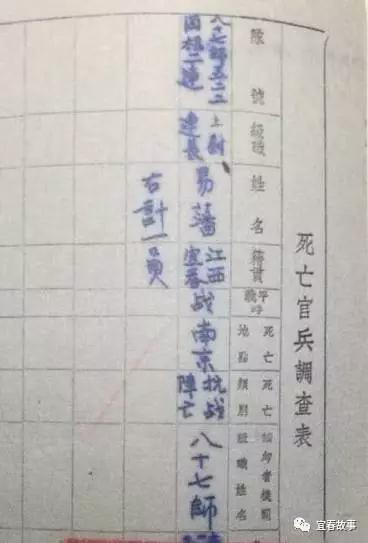 死亡官兵調查表
隊號
級職
姓名
籍貫
死亡
地點
死亡
類別
者機關
級職姓名
八七師五二二
團機二連
上尉
連長
易藩
江西
宜春
战
南京
抗战
陣亡
八十七師
右計一員
宜春故事